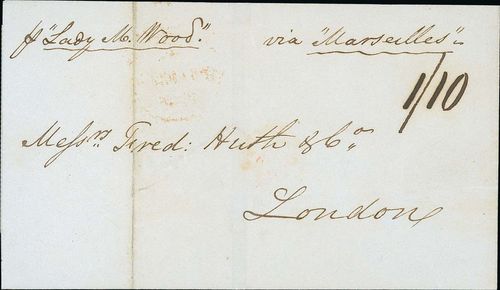 p "Lady M. Wood." via "Marseilles"
1/10
Messrs. Fred: Huth & Co.
London